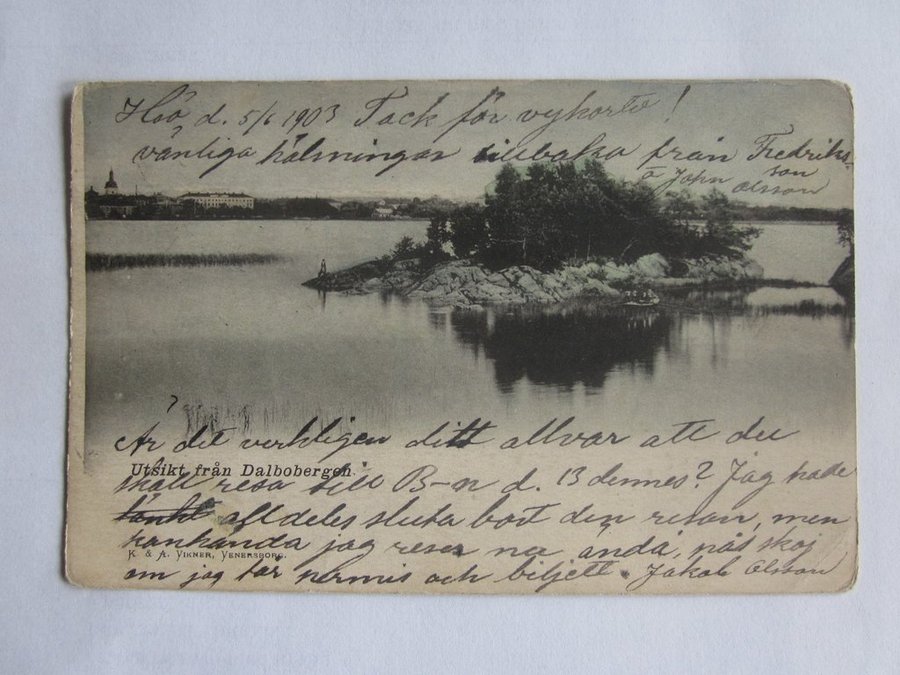 d. 5/6 1903 Tack för vykortet!
vänliga hälsningar tillbaka från Fredrikson
o John Olsson
Är det verkligen ditt allvar att du
Utsikt från Dalbobergen.
skall resa till B-n d. 13 dennes? Jag hade
tänkt alldeles sluta bort den resan, men
kankända jag reser nu ändå, på skoj
K. & A. Vikner, Venersborg.
om jag får permis och biljett. Jakob Olsson